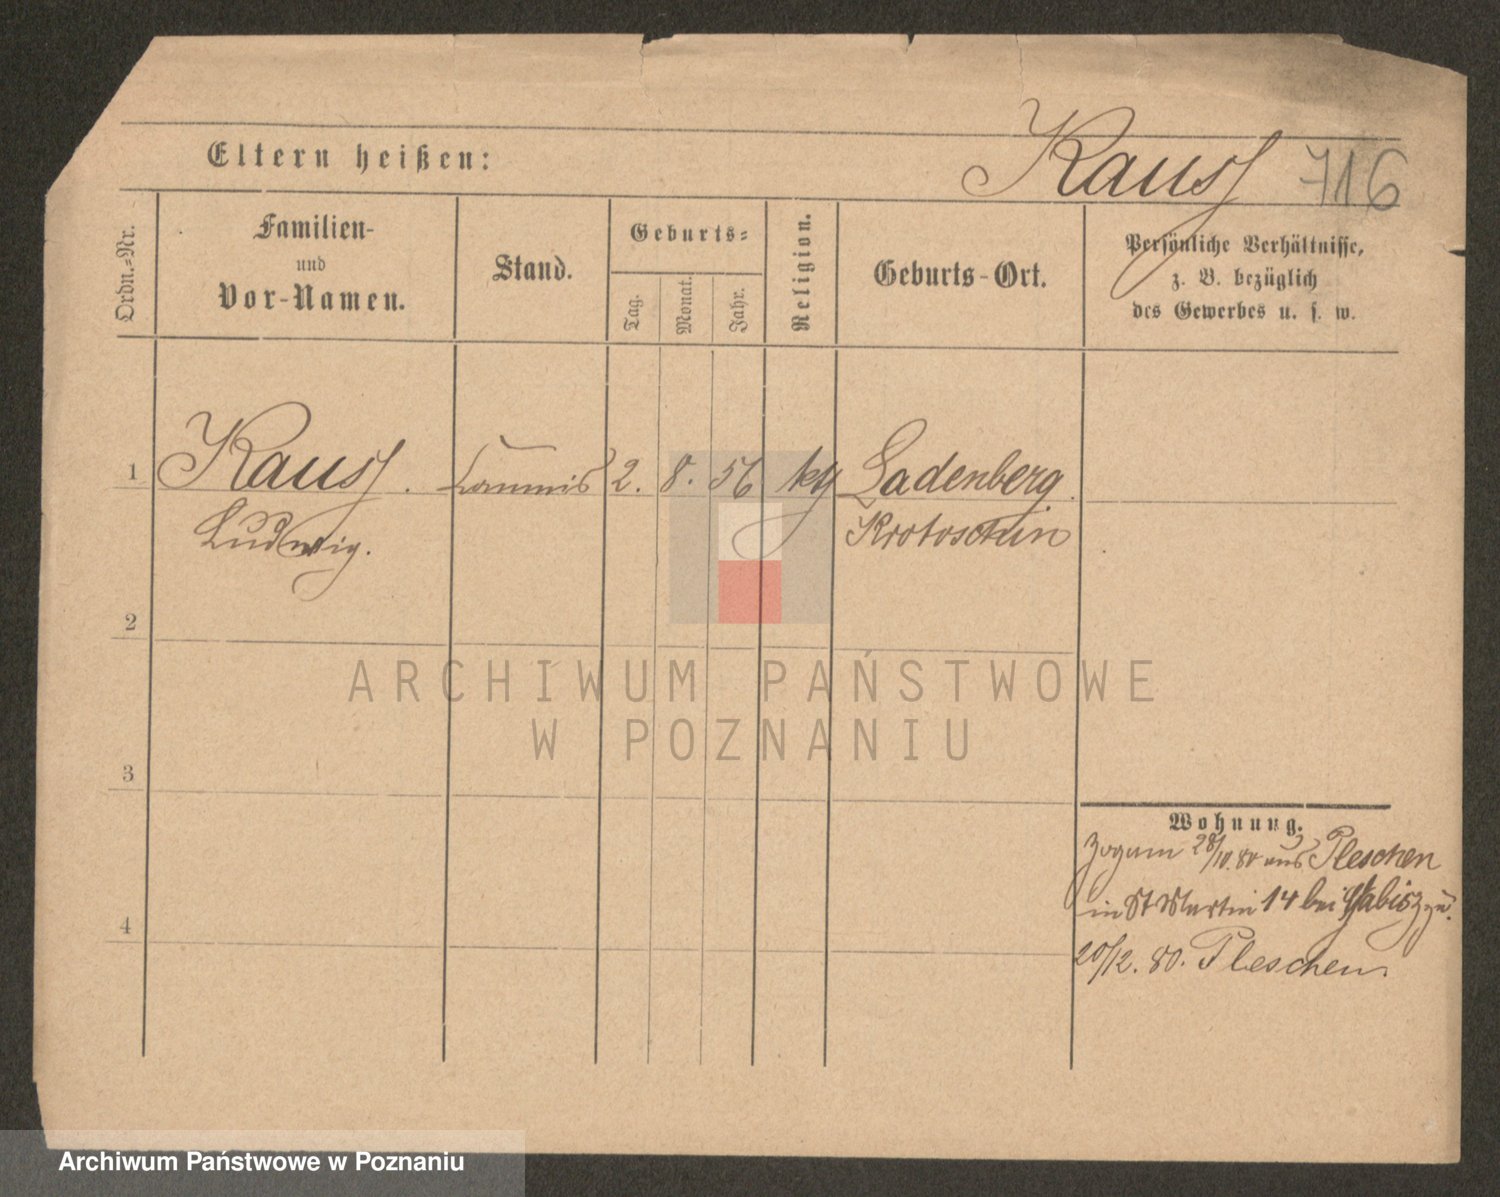 Eltern heißen:
Kauss 716
Ordn.-Nr.
Familien-
und
Vor-Namen.
Stand.
Geburts-
Tag.
Monat.
Jahr.
Religion.
Geburts-Ort.
Persönliche Verhältnisse,
z. B. bezüglich
des Gewerbes u. s. w.
1 Kauss. Commis 2. 8. 56 kth Ladenberg
Ludwig. Krotoschin
2
3
4
Wohnung.
Zogam 28/10.80 aus Pleschen
in St Martin 14 bei zu.
20/12. 80. Pleschen.
ARCHIWUM PAŃSTWOWE
W POZNANIU
Archiwum Państwowe w Poznaniu